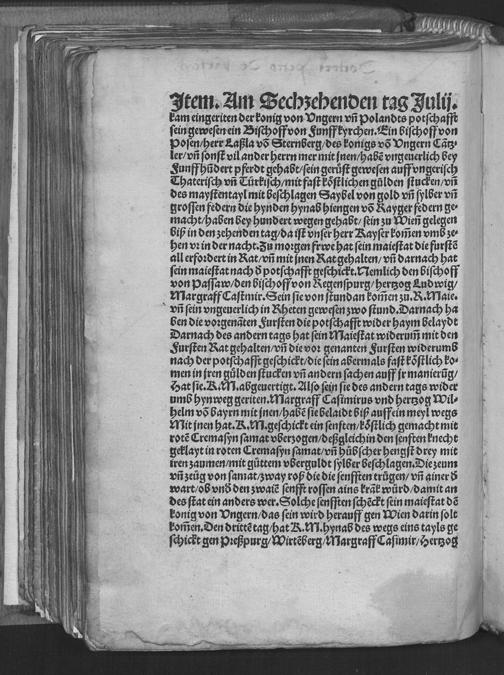 Item. Am Sechzehenden tag Julij.
kam eingeriten der konig von Vngern vñ Polandts potschafft
sein gewesen ein Bischoff von Funffkyrchen. Ein bischoff von
Posen/herr Laßla võ Sternberg/des konigs võ Vngern Cãtz-
ler/vñ sonst vil ander herrn mer mit jnen/habẽ vngeuerlich bey
Funffhũdert pferdt gehabt/sein gerüst gewesen auff vngerisch
Thaterisch vñ Türkisch/mit fast köstlichen gülden stucken/vñ
des maystentayl mit beschlagen Saybel von gold vñ sylber vñ
grossen federn die hynden hynab hiengen võ Rayger federn ge-
macht/haben bey hundert wegen gehabt/sein zu Wien gelegen
biß in den zehenden tag/da ist vnser herr Kayser kom̃en vmb ze-
hen vr in der nacht. Zu morgen frwe hat sein maiestat die furstẽ
all erfordert in Rat/vñ mit jnen Rat gehalten/vñ darnach hat
sein maiestat nach d̃ potschafft geschickt. Nemlich den bischoff
von Passaw/den bischoff von Regenspurg/hertzog Ludwig/
Margraff Casimir. Sein sie von stund an kom̃en zu. K. Maie.
vñ sein vngeuerlich in Rheten gewesen zwo stund. Darnach ha-
ben die vorgenãten Fursten die potschafft wider haym belaydt
Darnach des andern tags hat sein Maiestat widerum̃ mit den
Fursten Rat gehalten/vñ die vor genanten Fursten widerumb
nach der potschafft geschickt/die sein abermals fast köstlich ko-
men in jren gülden stucken vñ andern sachen auff jr manierũg/
Hat sie. K. M. abgeuertigt. Also sein sie des andern tags wider
umb hynweg geriten. Margraff Casimirus vnd hertzog Wil-
helm võ bayrn mit jnen/habẽ sie belaidt biß auff ein meyl wegs
Mit jnen hat. K. M. geschickt ein senften/köstlich gemacht mit
rotẽ Cremasyn samat vberzogen/deßgleich in den senften knecht
geklayt in roten Cremasyn samat/vñ hübscher hengst drey mit
iren zaumen/mit güttem vberguldt sylber beschlagen. Die zeum
vñ zeug von samat/zway roß die die senfften trügen/vñ ainer d̃
wart/ob võ den zwaiẽ senfft rossen ains krãk würd/damit an
des stat ein anders wer. Solche senfften schẽckt sein maiestat dẽ
konig von Vngern/das sein wird herauff gen Wien darin solt
kom̃en. Den drittẽ tag/hat K. M. hynab des wegs eins tayls ge-
schickt gen Preßpurg/Wirtẽberg/Margraff Casimir/Hertzog